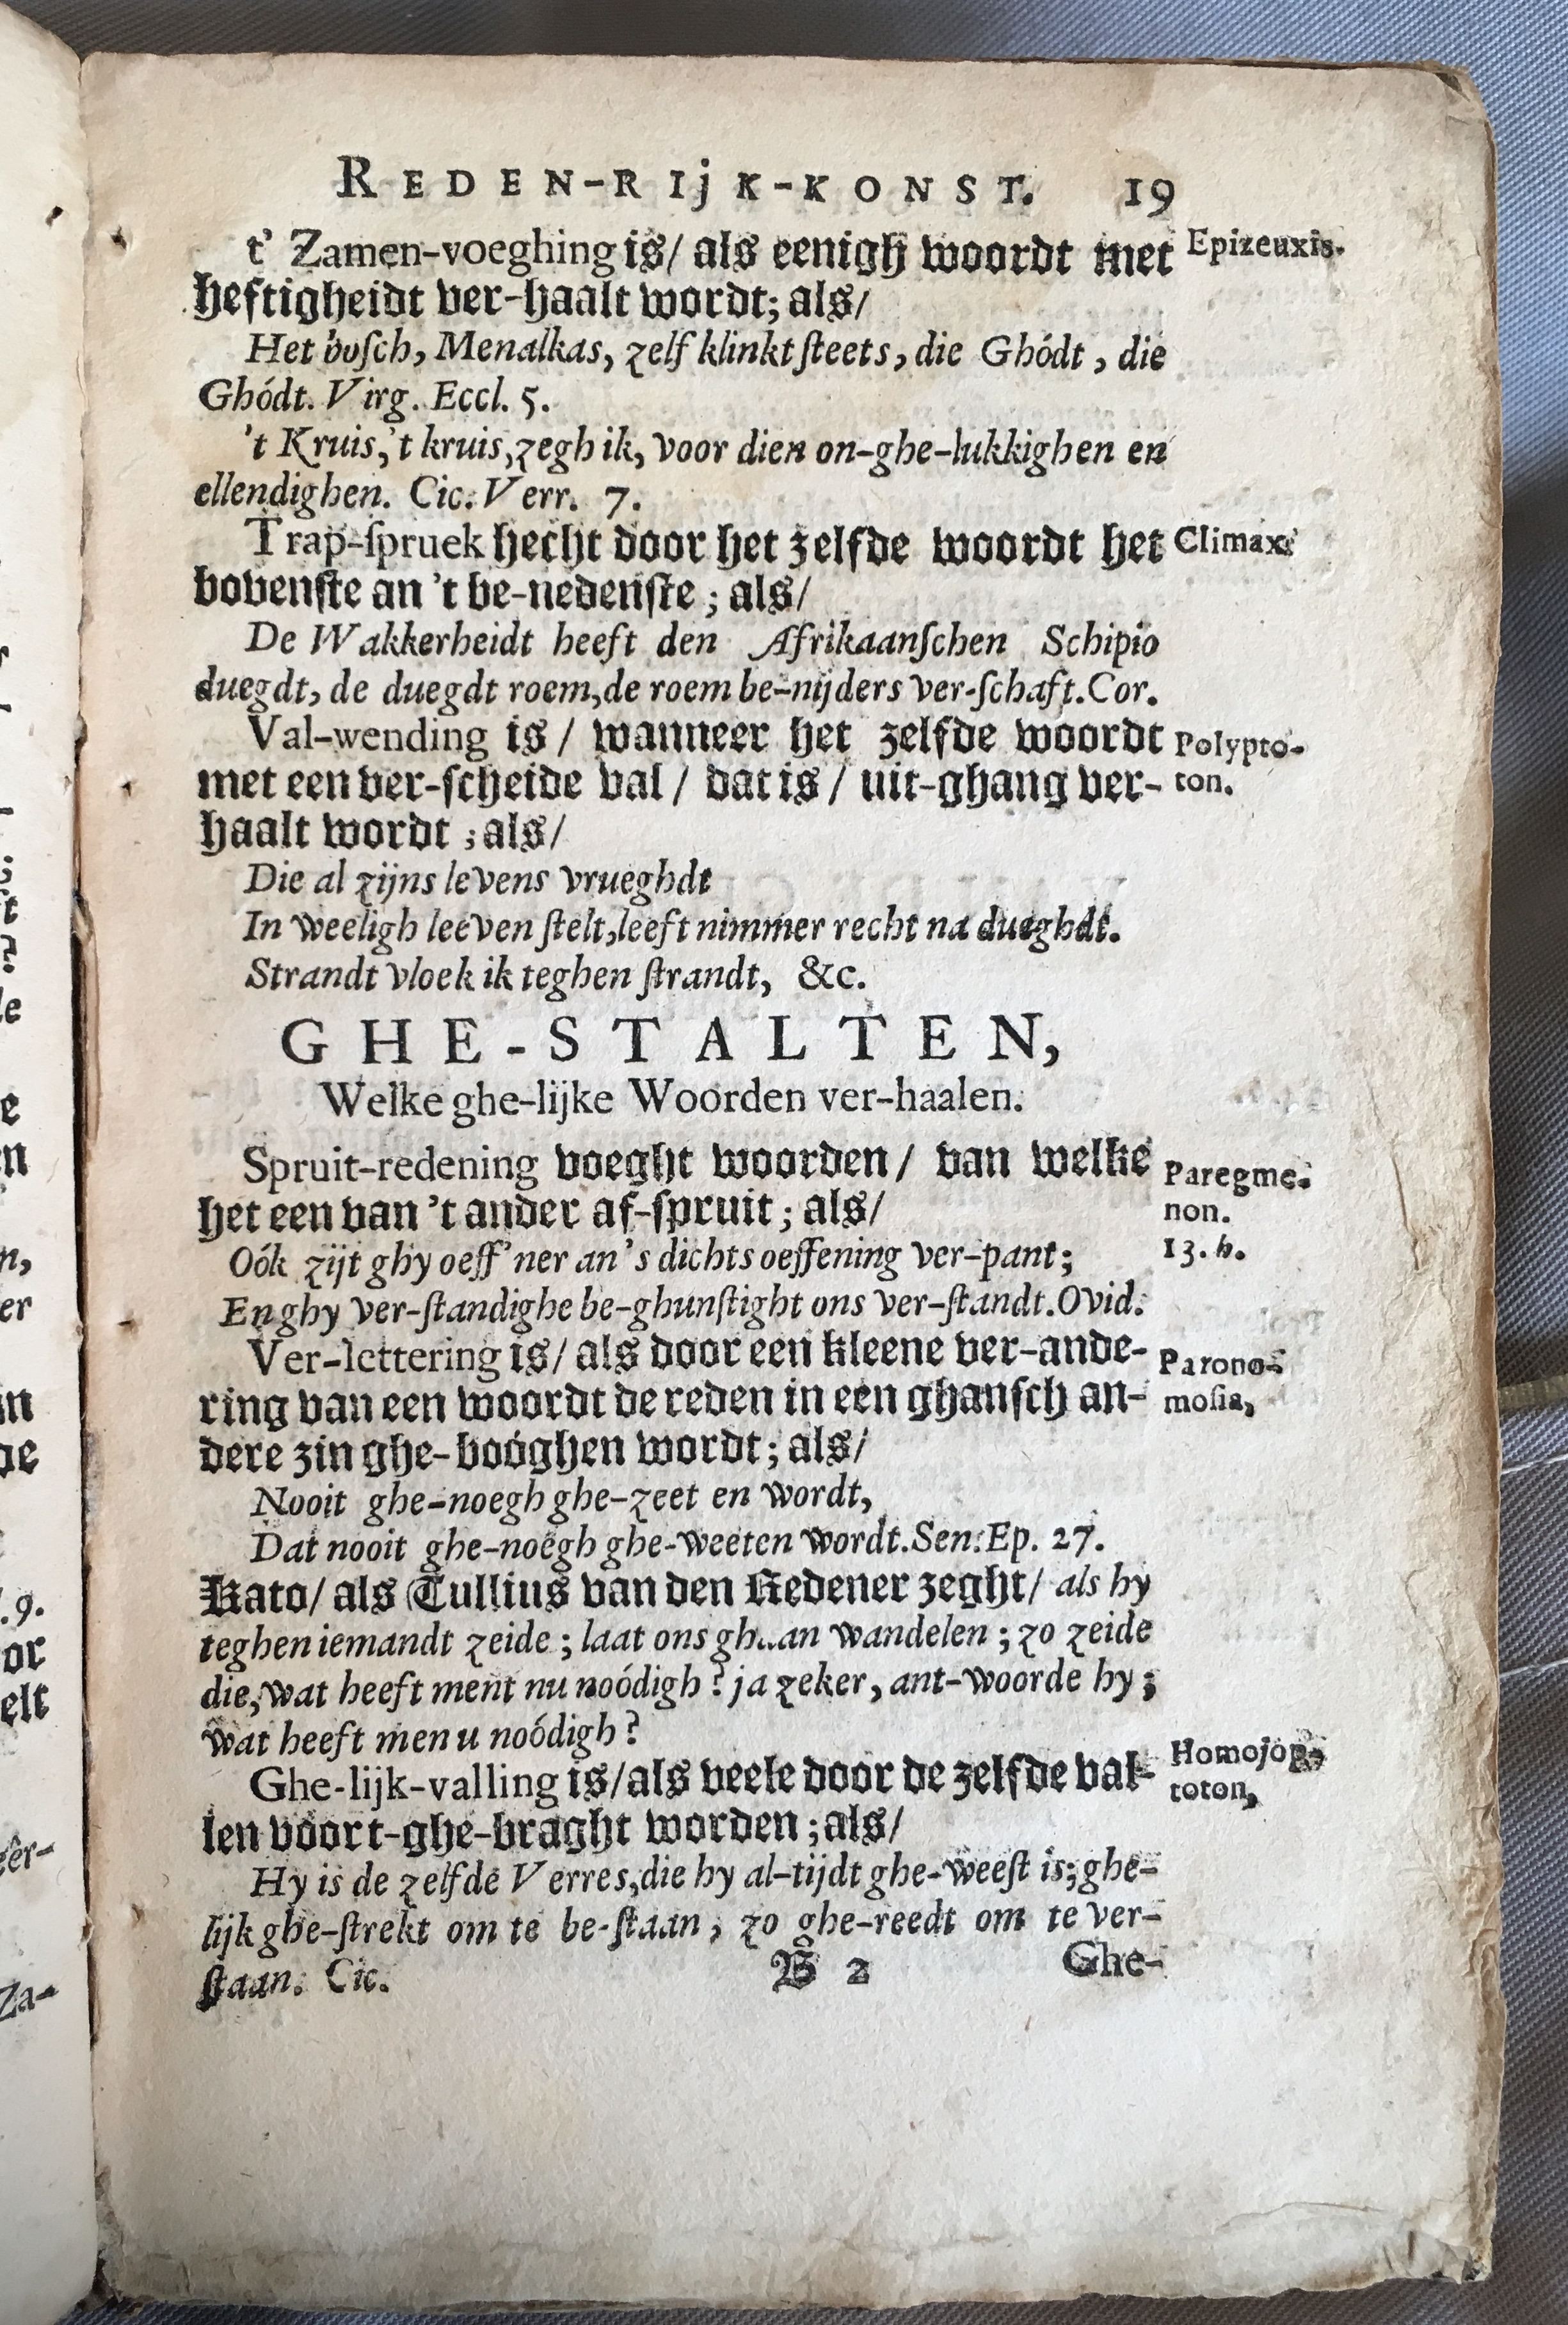 REDEN-RIjK-KONST. 19
t' Zamen-voeghing is/ als eenigh woordt met
Epizeuxis.
heftigheidt ver-haalt wordt; als/
Het bosch, Menalkas, zelf klinkt steets, die Ghódt, die
Ghódt. Virg. Eccl. 5.
't Kruis, 't kruis, zegh ik, voor dien on-ghe-lukkighen en
ellendighen. Cic. Verr. 7.
Trap-spruek hecht door het zelfde woordt het
Climax.
bovenste an 't be-nedenste; als/
De Wakkerheidt heeft den Afrikaanschen Schipio
duegdt, de duegdt roem, de roem be-nijders ver-schaft. Cor.
Val-wending is/ wanneer het zelfde woordt
Polypto-
met een ver-scheide val/ dat is/ uit-ghang ver-
ton.
haalt wordt; als/
Die al zijns levens vrueghdt
In weeligh leeven stelt, leeft nimmer recht na dueghdt.
Strandt vloek ik teghen strandt, &c.
GHE-STALTEN,
Welke ghe-lijke Woorden ver-haalen.
Spruit-redening voeght woorden/ van welke
Paregme-
het een van 't ander af-spruit; als/
non.
Oók zijt ghy oeff'ner an's dichts oeffening ver-pant;
13. h.
En ghy ver-standighe be-ghunstight ons ver-standt. Ovid.
Ver-lettering is/ als door een kleene ver-ande-
Parono-
ring van een woordt de reden in een ghansch an-
mosia,
dere zin ghe-boóghen wordt; als/
Nooit ghe-noegh ghe-zeet en wordt,
Dat nooit ghe-noegh ghe-weeten wordt. Sen. Ep. 27.
Kato/ als Tullius van den Redener zeght/ als hy
teghen iemandt zeide; laat ons ghaan wandelen; zo zeide
die, wat heeft ment nu noódigh? ja zeker, ant-woorde hy;
wat heeft men u noódigh?
Ghe-lijk-valling is/ als veele door de zelfde val-
Homojop-
len voort-ghe-braght worden; als/
toton,
Hy is de zelfde Verres, die hy al-tijdt ghe-weest is; ghe-
lijk ghe-strekt om te be-staan, zo ghe-reedt om te ver-
staan. Cic.
B 2 Ghe-